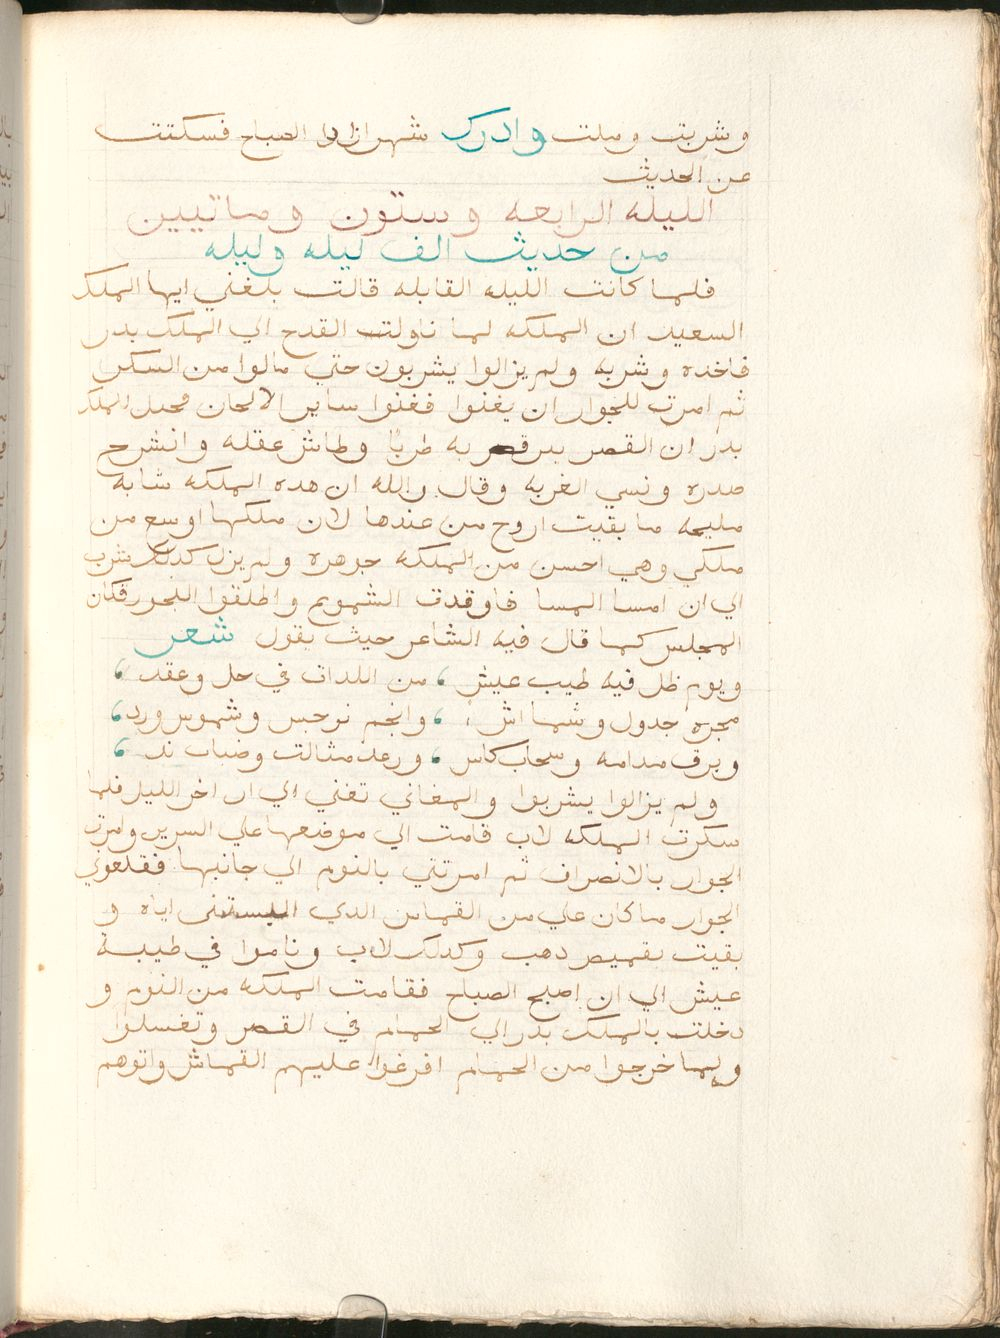 وشربت وملت وادرك شهرازاد الصباح فسكتت
عن الحديث
الليله الرابعه وستون وماتيين
من حديث الف ليله وليله
فلما كانت الليله القابله قالت بلغني ايها الملك
السعيد ان الملكه لما ناولت القدح الي الملك بدر
فاخده وشربه ولم يزالوا يشربون حتي مالوا من السكر
ثم امرت للجوار ان يغنوا فغنوا ساير الالحان فخيل الملك
بدر ان القصر يرقص به طربًا وطاش عقله وانشرح
صدره ونسي الغربه وقال والله ان هده الملكه شابه
مليحه ما بقيت اروح من عندها لان ملكها اوسع من
ملكي وهي احسن من الملكه جوهره ولم يزل كدلك يشرب
الي ان امسا المسا فاوقدت الشموع واطلقوا البخور فكان
المجلس كما قال فيه الشاعر حيث يقول شعر
ويوم ظل فيه طيب عيش ، من اللدات في حل وعقد ،
مجره جدول وسما اش ، وانجم نرجس وشموس ورد ،
وبرق مدامه وسحاب كاس ، ورعد مثالت وضباب ند ،
ولم يزالوا يشربوا والمغاني تغني الي ان اخر الليل فلما
سكرت الملكه لاب قامت الي موضعها علي السرير وامرت
الجوار بالانصراف ثم امرتني بالنوم الي جانبها فقلعوني
الجوار ما كان علي من القماش الدي البستني اياه و
بقيت بقميص دهب وكدلك لاب وناموا في طيبة
عيش الي ان اصبح الصباح فقامت الملكه من النوم و
دخلت بالملك بدر الي الحمام في القصر وتغسلوا
ولما خرجوا من الحمام افرغوا عليهم القماش واتوهم